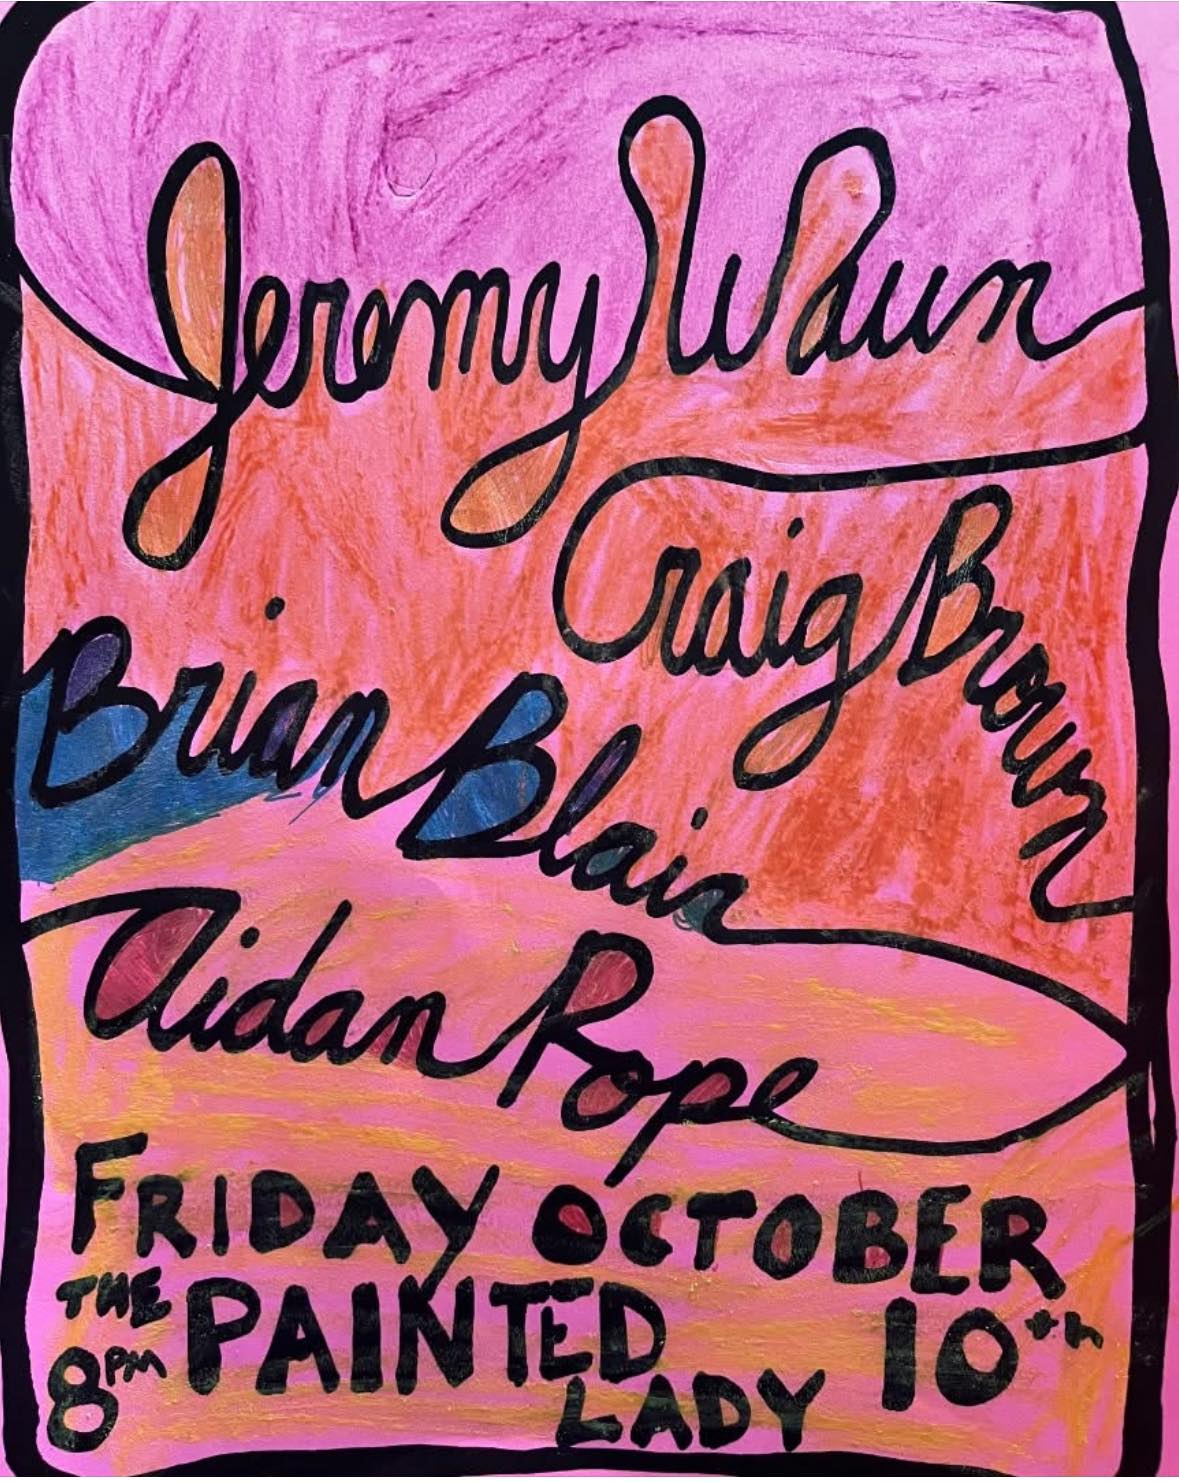 Jeremy Waun
Craig Brown
Brian Blair
Aidan Rope
FRIDAY OCTOBER
10th
THE PAINTED
LADY
8PM